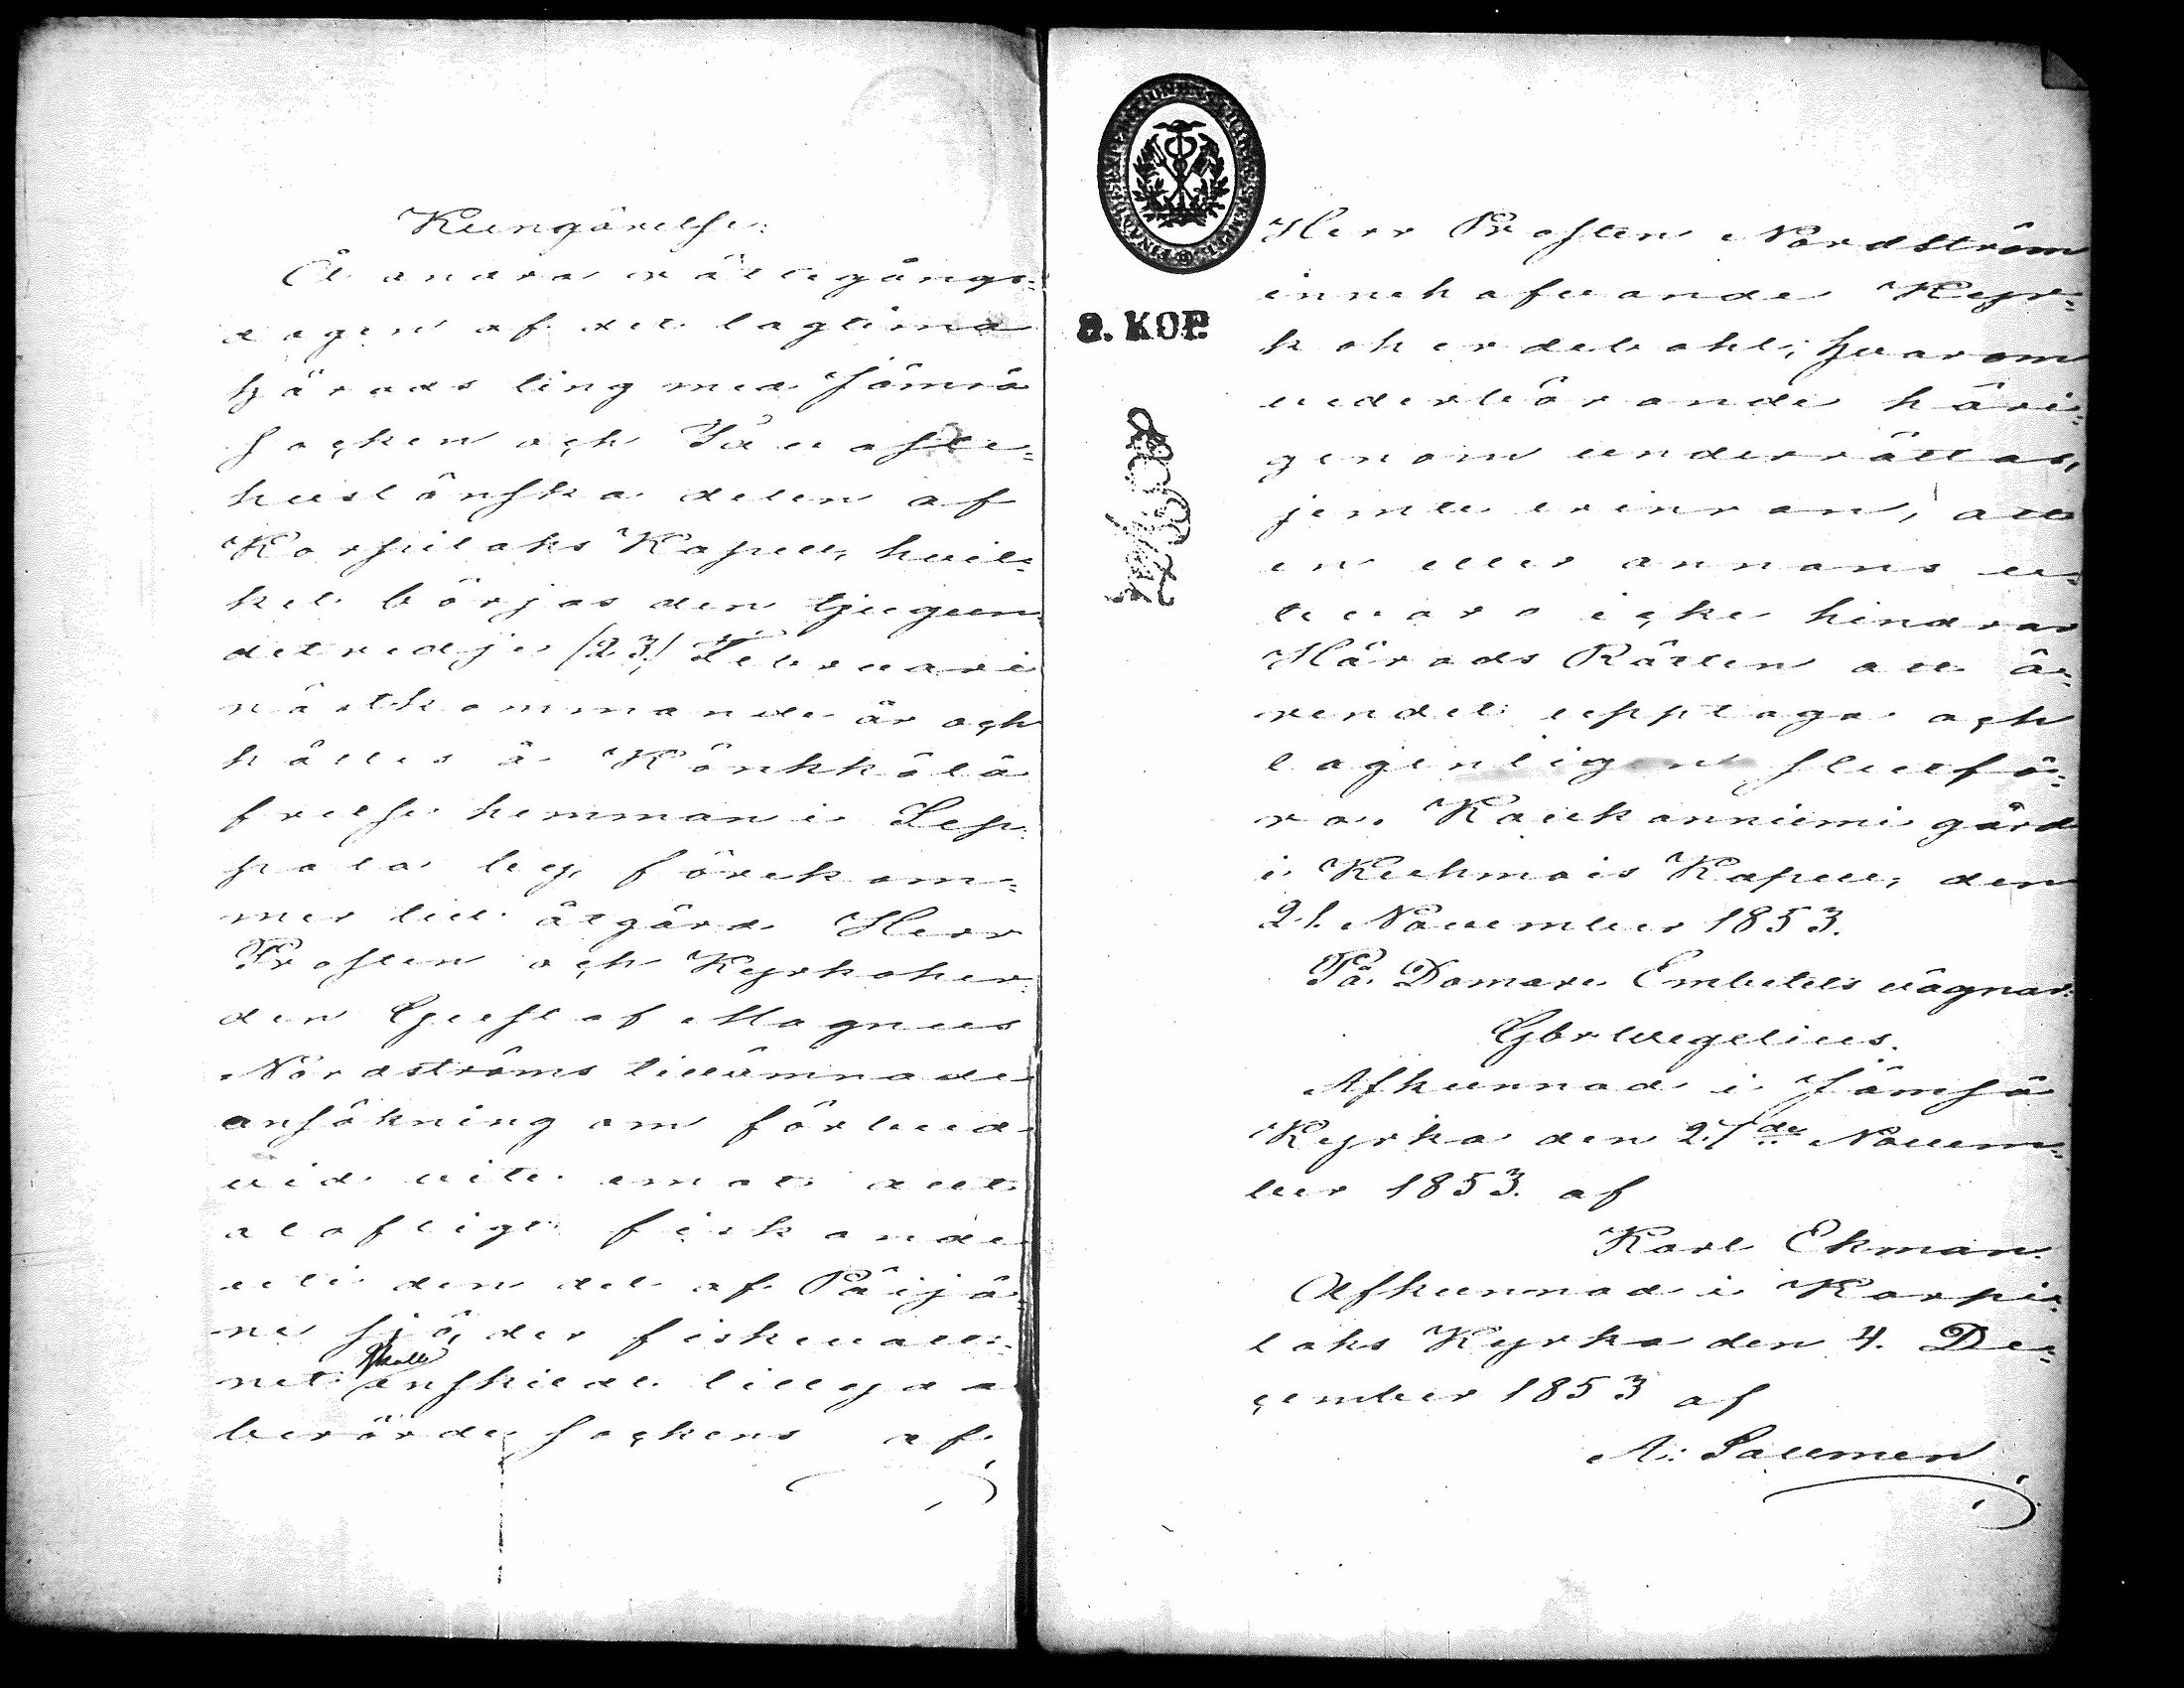 Kungörelse.
Å andra rättegångs-
dagen af det lagtima
Härads ting med Jämsä
Socken och Tavaste-
huslänska delen af
Korpilaks Kapell, hvil-
ket börjas den tjugun-
detredje /23/ Februari
nästkommande år och
hålles å Könkkölä
frelse hemman i Lep-
pala by, förekom-
mer till åtgärd Herr
Prosten och Kyrkoher-
den Gustaf Magnus
Nordströms tillämnade
ansökning om förbud
vid vite emot allt
olofligt fiskande
uti den del af Päijä-
ne sjö, der fiskevatt-
net skall enskildt tillhöra
berörde Sockens af
Herr Prosten Nordström
innehafvande Kyr-
koherdebohl; hvarom
vederbörande häri-
genom underrättas,
jemte erinran, att
en eller annans u-
tevaro icke hindrar
Härads Rätten att ä-
rendet upptaga och
lagenligen slutfö-
ra. Kaukanniemi gård
i Kuhmois Kapell, den
21. November 1853.
På Domare Embetets vägnar:
Gbr Wegelius.
Afkunnad i Jämsä
Kyrka den 27de Novem-
ber 1853. af
Karl Ekman.
Afkunnad i Korpi-
laks Kyrka den 4. De-
cember 1853 af
A: Salmen
8. KOP.